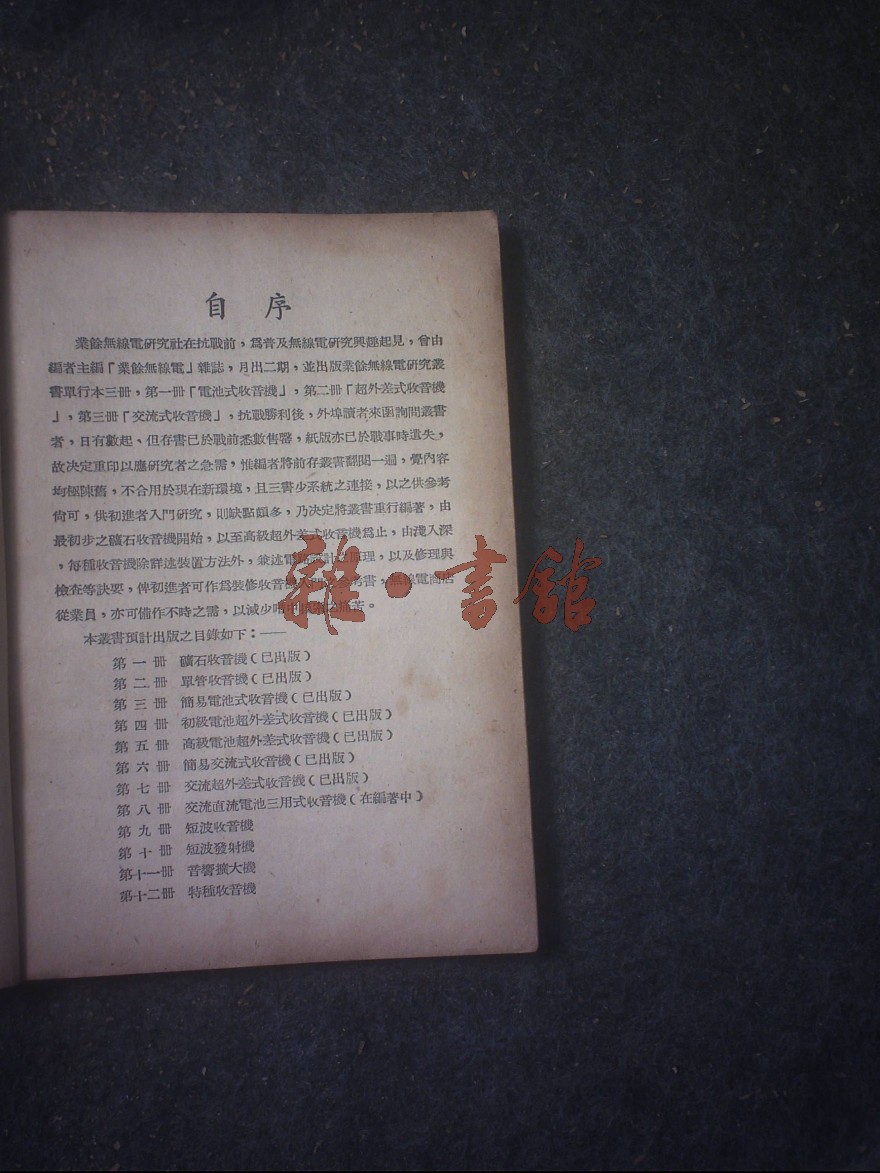 自序
業餘無線電研究社在抗戰前，爲普及無線電研究興趣起見，曾由
編者主編「業餘無線電」雜誌，月出二期，並出版業餘無線電研究叢
書單行本三冊，第一冊「電池式收音機」，第二冊「超外差式收音機
」，第三冊「交流式收音機」，抗戰勝利後，外埠讀者來函詢問叢書
者，日有數起，但存書已於戰前悉數售罄，紙版亦已於戰事時遺失，
故決定重印以應研究者之急需，惟編者將前存叢書翻閱一遍，覺內容
均極陳舊，不合用於現在新環境，且三書少系統之連接，以之供參考
尙可，供初進者入門研究，則缺點頗多，乃決定將叢書重行編著，由
最初步之礦石收音機開始，以至高級超外差式收音機爲止，由淺入深
，每種收音機除詳述裝置方法外，兼述電路設計之原理，以及修理與
檢查等訣要，俾初進者可作爲裝修收音機入門之參考書，無線電商店
從業員，亦可備作不時之需，以減少暗中摸索之痛苦。
本叢書預計出版之目錄如下：——
第一冊 礦石收音機（已出版）
第二冊 單管收音機（已出版）
第三冊 簡易電池式收音機（已出版）
第四冊 初級電池超外差式收音機（已出版）
第五冊 高級電池超外差式收音機（已出版）
第六冊 簡易交流式收音機（已出版）
第七冊 交流超外差式收音機（已出版）
第八冊 交流直流電池三用式收音機（在編著中）
第九冊 短波收音機
第十冊 短波發射機
第十一冊 音響擴大機
第十二冊 特種收音機
雜·書館